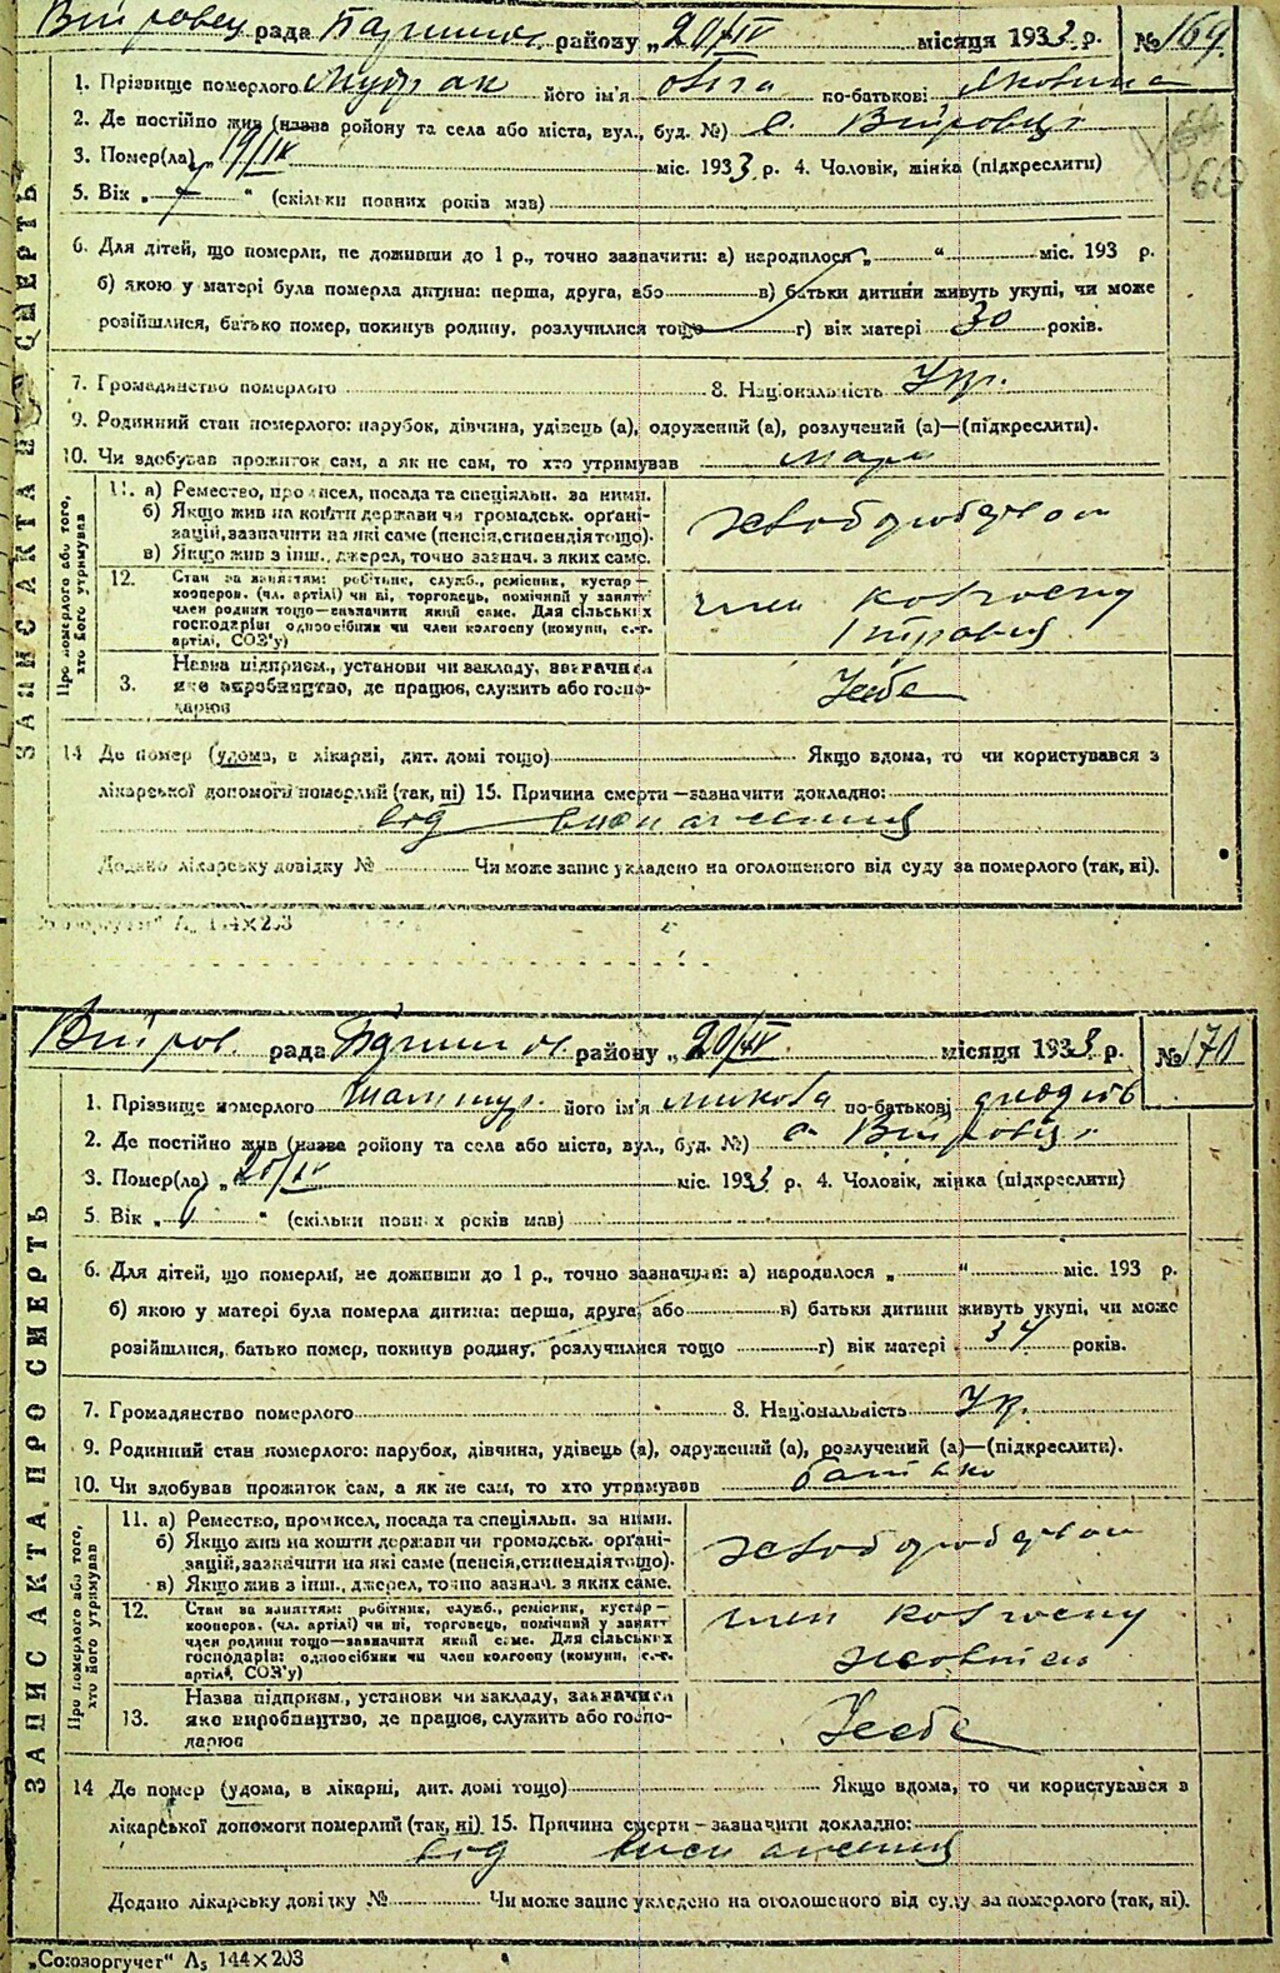 рада району „20/IV місяця 1933 р. № 169
1. Прізвище померлого Мудрак його ім'я Ольга по-батькові Яковина
2. Де постійно жив (назва району та села або міста, вул., буд. №) с. Війтовці
3. Помер(ла) „19/IV міс. 1933 р. 4. Чоловік, жінка (підкреслити)
66
5. Вік „ 7 “ (скільки повних років мав)
6. Для дітей, що померли, не доживши до 1 р., точно зазначити: а) народилося „ “ міс. 193 р.
б) якою у матері була померла дитина: перша, друга, або в) батьки дитини живуть укупі, чи може
розійшлися, батько помер, покинув родину, розлучилися тощо г) вік матері 30 років.
7. Громадянство померлого 8. Національність Укр.
9. Родинний стан померлого: парубок, дівчина, удівець (а), одружений (а), розлучений (а)—(підкреслити).
10. Чи здобував прожиток сам, а як не сам, то хто утримував мати
ЗАПИС АКТА ПРО СМЕРТЬ
Про померлого або того,
хто його утримував
11. а) Ремество, промисел, посада та спеціяльн. за ними.
б) Якщо жив на кошти держави чи громадськ. орґані-
зацій, зазначити на які саме (пенсія, стипендія тощо).
в) Якщо жив з інш., джерел, точно зазнач. з яких саме.
хлібодробство
12. Стан за заняттям: робітник, служб., ремісник, кустар—
кооперов. (чл. артілі) чи ні, торговець, помічний у занятт
член родини тощо—зазначити який саме. Для сільських
господарів: одноосібник чи член колгоспу (комуни, с.-г.
артілі, СОЗ'у)
член колгоспу
3. Назва підприєм., установи чи закладу, зазначити
яке виробництво, де працює, служить або госпо-
дарює
14 Де помер (удома, в лікарні, дит. домі тощо) Якщо вдома, то чи користувався з
лікарської допомоги померлий (так, ні) 15. Причина смерти—зазначити докладно:
від виснаження
Додано лікарську довідку № Чи може запис укладено на оголошеного від суду за померлого (так, ні).
„Союзоргучет“ А₅ 144×203
рада району „20/IV місяця 1933 р. № 170
1. Прізвище померлого його ім'я Микола по-батькові
2. Де постійно жив (назва району та села або міста, вул., буд. №) с. Війтовці
3. Помер(ла) „20/IV міс. 1933 р. 4. Чоловік, жінка (підкреслити)
5. Вік „ “ (скільки повних років мав)
6. Для дітей, що померли, не доживши до 1 р., точно зазначити: а) народилося „ “ міс. 193 р.
б) якою у матері була померла дитина: перша, друга, або в) батьки дитини живуть укупі, чи може
розійшлися, батько помер, покинув родину, розлучилися тощо г) вік матері 34 років.
7. Громадянство померлого 8. Національність Укр.
9. Родинний стан померлого: парубок, дівчина, удівець (а), одружений (а), розлучений (а)—(підкреслити).
10. Чи здобував прожиток сам, а як не сам, то хто утримував батько
ЗАПИС АКТА ПРО СМЕРТЬ
Про померлого або того,
хто його утримував
11. а) Ремество, промисел, посада та спеціяльн. за ними.
б) Якщо жив на кошти держави чи громадськ. орґані-
зацій, зазначити на які саме (пенсія, стипендія тощо).
в) Якщо жив з інш., джерел, точно зазнач. з яких саме.
хлібодробство
12. Стан за заняттям: робітник, служб., ремісник, кустар—
кооперов. (чл. артілі) чи ні, торговець, помічний у занятт
член родини тощо—зазначити який саме. Для сільських
господарів: одноосібник чи член колгоспу (комуни, с.-г.
артілі, СОЗ'у)
член колгоспу
13. Назва підприєм., установи чи закладу, зазначити
яке виробництво, де працює, служить або госпо-
дарює
14 Де помер (удома, в лікарні, дит. домі тощо) Якщо вдома, то чи користувався з
лікарської допомоги померлий (так, ні) 15. Причина смерти—зазначити докладно:
від виснаження
Додано лікарську довідку № Чи може запис укладено на оголошеного від суду за померлого (так, ні).
„Союзоргучет“ А₅ 144×203